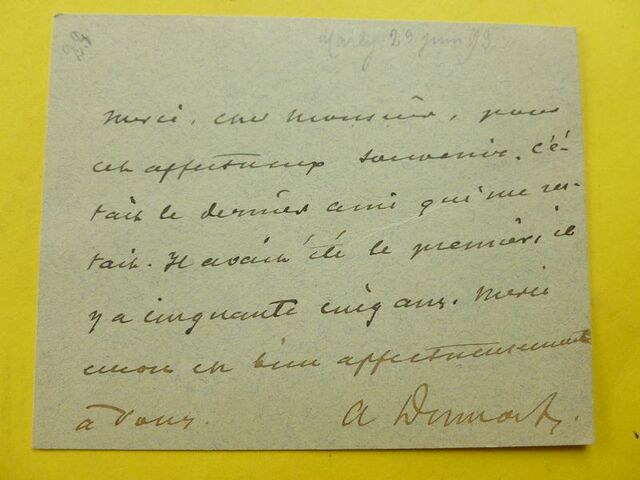 Marly 23 juin 93
Merci, cher Monsieur, pour
cet affectueux souvenir. C'é-
tait le dernier ami qui me res-
tait. Il avait été le premier, il
y a cinquante cinq ans. Merci
encore et bien affectueusement
à vous.
A Dumas f.